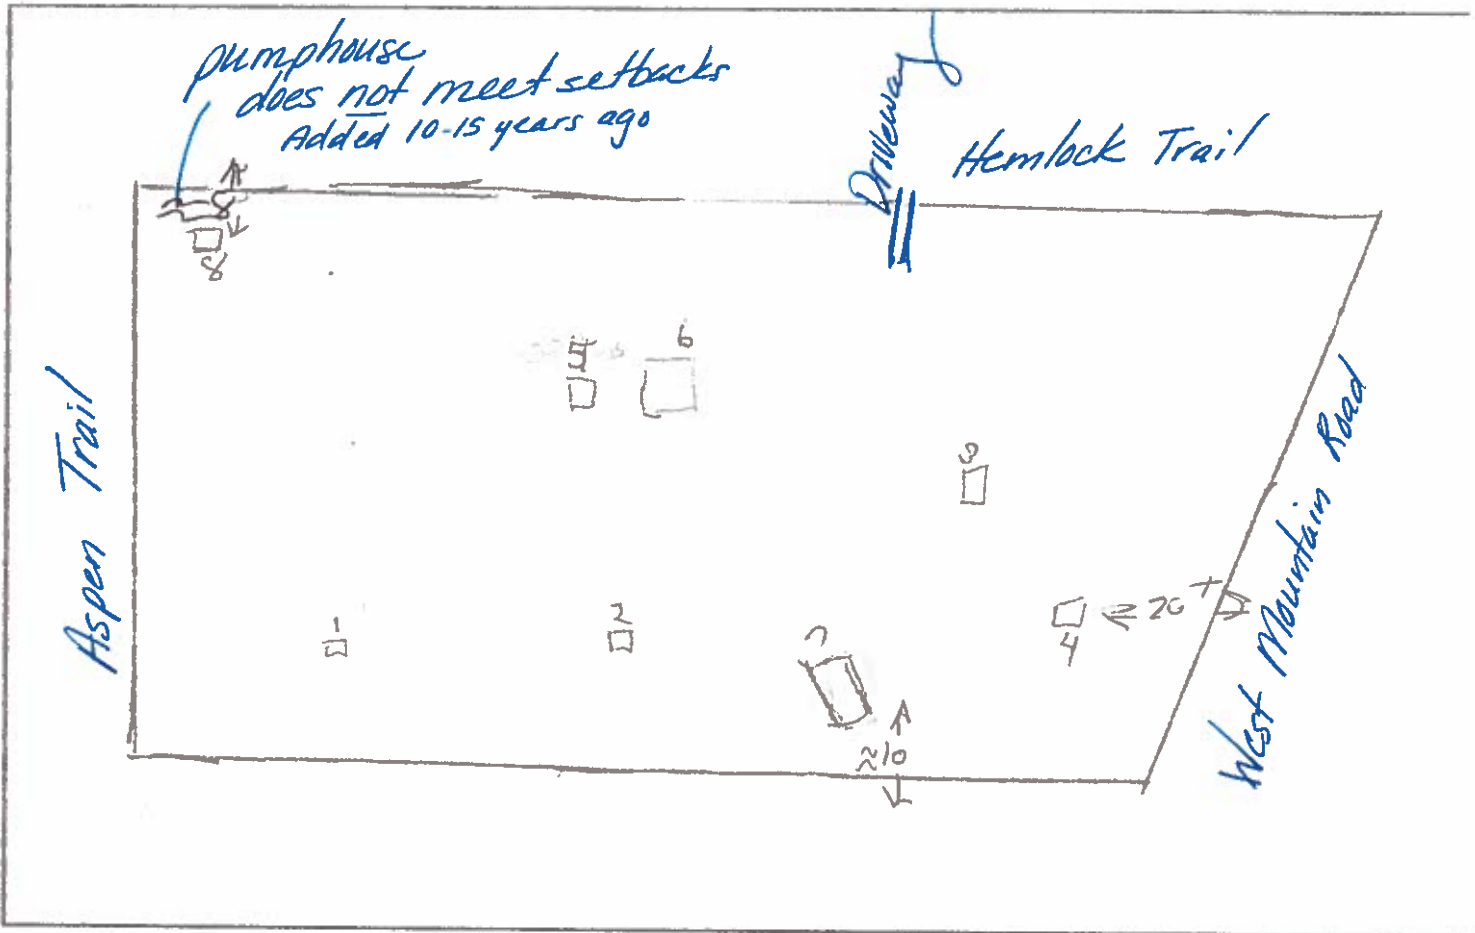 pumphouse
does not meet setbacks
Added 10-15 years ago
Driveway
Hemlock Trail
8
5
6
3
Aspen Trail
West Mountain Road
1
2
7
4
≈10